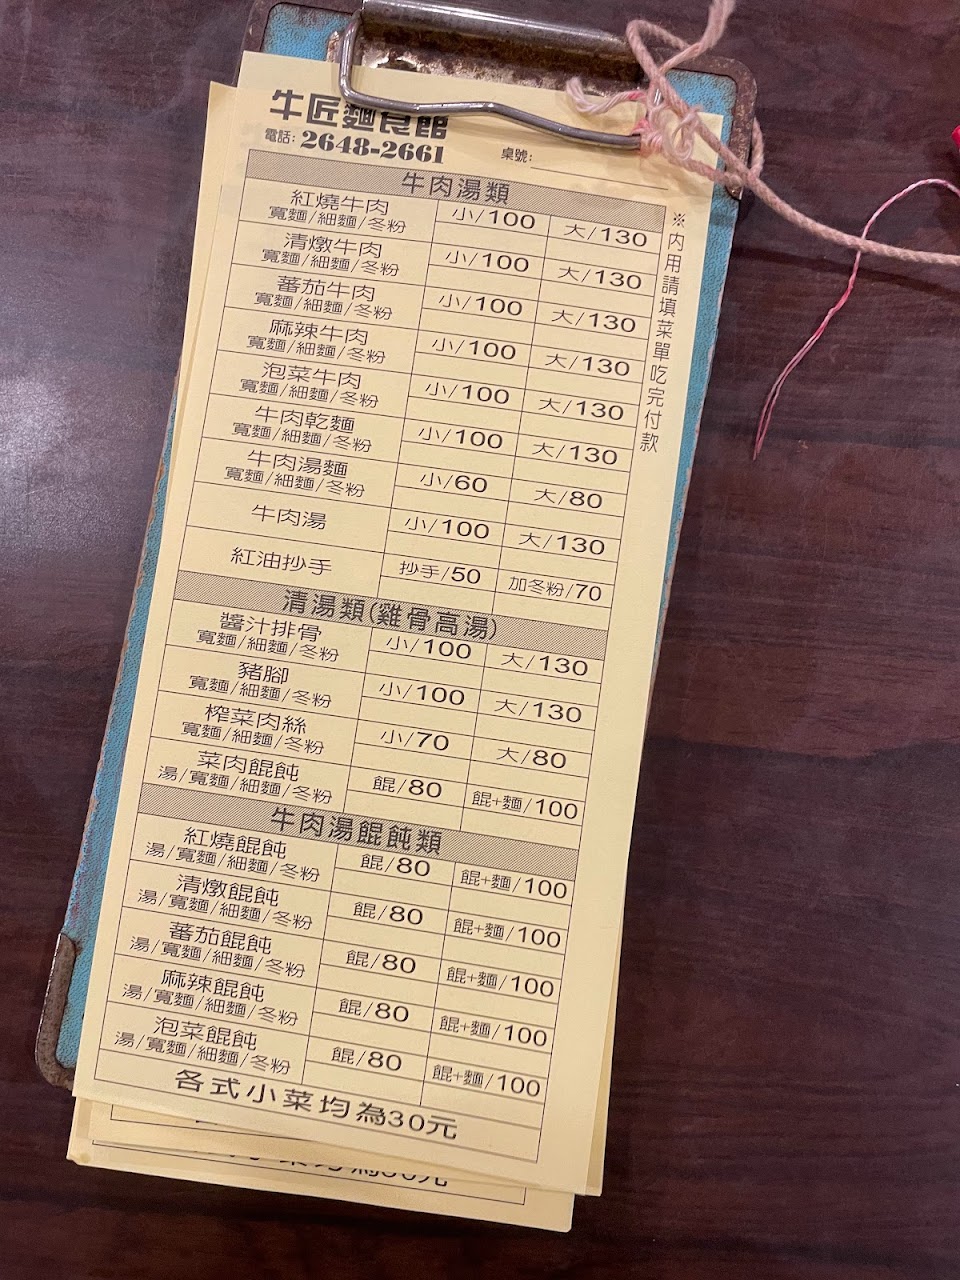 牛匠麵食館
電話: 2648-2661 桌號:
牛肉湯類
紅燒牛肉 小/100 大/130
寬麵/細麵/冬粉
清燉牛肉 小/100 大/130
寬麵/細麵/冬粉
蕃茄牛肉 小/100 大/130
寬麵/細麵/冬粉
麻辣牛肉 小/100 大/130
寬麵/細麵/冬粉
泡菜牛肉 小/100 大/130
寬麵/細麵/冬粉
牛肉乾麵 小/100 大/130
寬麵/細麵/冬粉
牛肉湯麵 小/60 大/80
寬麵/細麵/冬粉
牛肉湯 小/100 大/130
紅油抄手 抄手/50 加冬粉/70
清湯類(雞骨高湯)
醬汁排骨 小/100 大/130
寬麵/細麵/冬粉
豬腳 小/100 大/130
寬麵/細麵/冬粉
榨菜肉絲 小/70 大/80
寬麵/細麵/冬粉
菜肉餛飩 餛/80 餛+麵/100
湯/寬麵/細麵/冬粉
牛肉湯餛飩類
紅燒餛飩 餛/80 餛+麵/100
湯/寬麵/細麵/冬粉
清燉餛飩 餛/80 餛+麵/100
湯/寬麵/細麵/冬粉
蕃茄餛飩 餛/80 餛+麵/100
湯/寬麵/細麵/冬粉
麻辣餛飩 餛/80 餛+麵/100
湯/寬麵/細麵/冬粉
泡菜餛飩 餛/80 餛+麵/100
湯/寬麵/細麵/冬粉
各式小菜均為30元
※內用請填菜單吃完付款